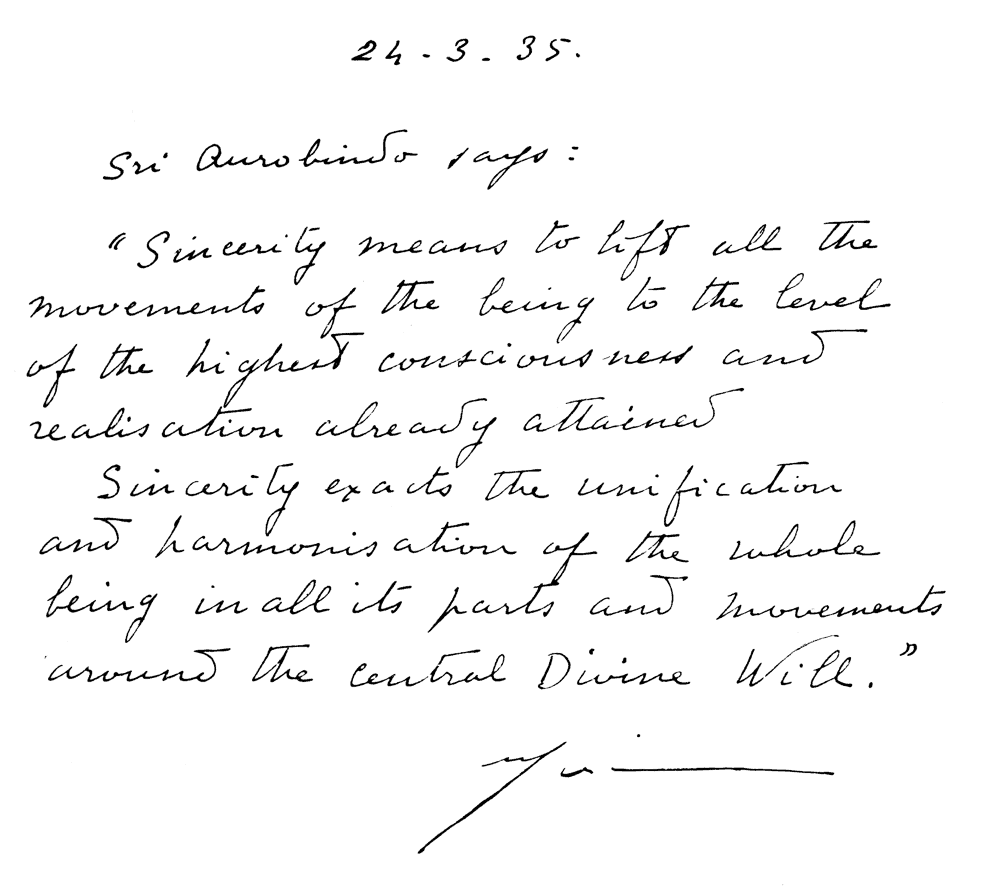 24-3-35.
Sri Aurobindo says:
"Sincerity means to lift all the
movements of the being to the level
of the highest consciousness and
realisation already attained
Sincerity exacts the unification
and harmonisation of the whole
being in all its parts and movements
around the central Divine Will."